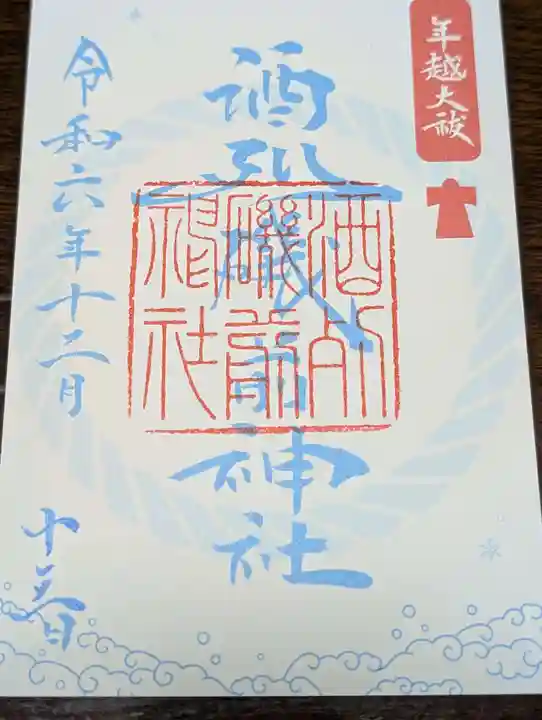 年越大祓
酒列磯前神社
酒列
磯前
神社
令和六年十二月